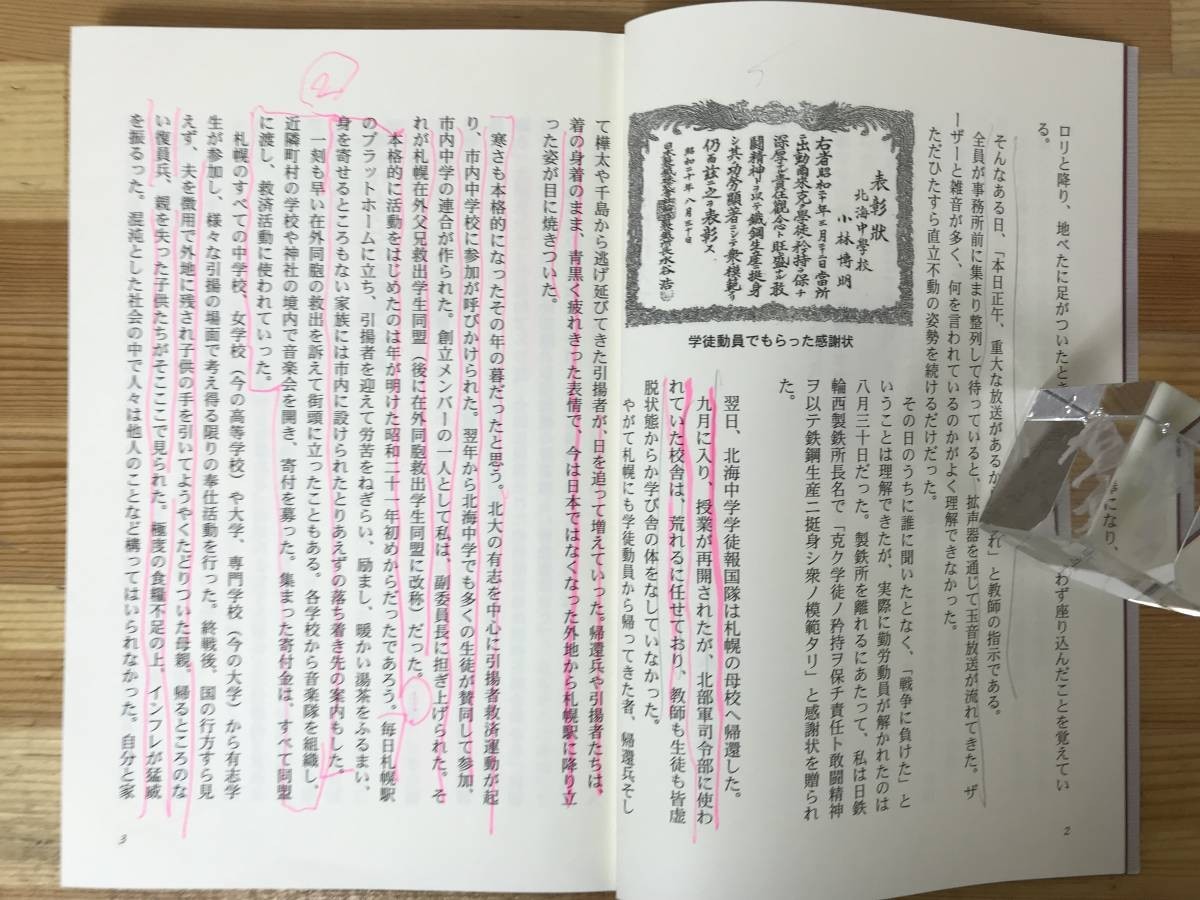 ロリと降り、地べたに足がついたとき
わず座り込んだことを覚えてい
る。
そんなある日、「本日正午、重大な放送があるか
れ」と教師の指示である。
全員が事務所前に集まり整列して待っていると、拡声器を通じて玉音放送が流れてきた。ザ
ーザーと雑音が多く、何を言われているのかがよく理解できなかった。
ただひたすら直立不動の姿勢を続けるだけだった。
その日のうちに誰に聞いたとなく、「戦争に負けた」と
いうことは理解できたが、実際に勤労動員が解かれたのは
八月三十日だった。製鉄所を離れるにあたって、私は日鉄
輪西製鉄所長名で「克ク学徒ノ矜持ヲ保チ責任ト敢闘精神
ヲ以テ鉄鋼生産ニ挺身シ衆ノ模範タリ」と感謝状を贈られ
た。
表彰狀
北海中學校
小林博明
右者昭和二十年三月二十二日當所
ニ出動爾来克ク學徒ノ矜持ヲ保チ
深厚ナル責任觀念ト旺盛ナル敢
闘精神トヲ以テ鐵鋼生産ニ挺身
シ其ノ功勞顯著ニシテ衆ノ模範タリ
仍而茲ニ之ヲ表彰ス
昭和二十年八月三十日
学徒動員でもらった感謝状
翌日、北海中学学徒報国隊は札幌の母校へ帰還した。
九月に入り、授業が再開されたが、北部軍司令部に使わ
れていた校舎は、荒れるに任せており、教師も生徒も皆虚
脱状態からか学び舎の体をなしていなかった。
やがて札幌にも学徒動員から帰ってきた者、帰還兵そし
2
て樺太や千島から逃げ延びてきた引揚者が、日を追って増えていった。帰還兵や引揚者たちは、
着の身着のまま、青黒く疲れきった表情で、今は日本ではなくなった外地から札幌駅に降り立
った姿が目に焼きついた。
寒さも本格的になったその年の暮だったと思う。北大の有志を中心に引揚者救済運動が起
り、市内中学校に参加が呼びかけられた。翌年から北海中学でも多くの生徒が賛同して参加、
市内中学の連合が作られた。創立メンバーの一人として私は、副委員長に担ぎ上げられた。そ
れが札幌在外父兄救出学生同盟（後に在外同胞救出学生同盟に改称）だった。
本格的に活動をはじめたのは年が明けた昭和二十一年初めからだったであろう。毎日札幌駅
のプラットホームに立ち、引揚者を迎えて労苦をねぎらい、励まし、暖かい湯茶をふるまい、
身を寄せるところもない家族には市内に設けられたとりあえずの落ち着き先の案内もした。
一刻も早い在外同胞の救出を訴えて街頭に立ったこともある。各学校から音楽隊を組織し、
近隣町村の学校や神社の境内で音楽会を開き、寄付を募った。集まった寄付金は、すべて同盟
に渡し、救済活動に使われていった。
札幌のすべての中学校、女学校（今の高等学校）や大学、専門学校（今の大学）から有志学
生が参加し、様々な引揚の場面で考え得る限りの奉仕活動を行った。終戦後、国の行方すら見
えず、夫を徴用で外地に残され子供の手を引いてようやくたどりついた母親。帰るところのな
い復員兵、親を失った子供たちがそこここで見られた。極度の食糧不足の上、インフレが猛威
を振るった。混沌とした社会の中で人々は他人のことなど構ってはいられなかった。自分と家
3